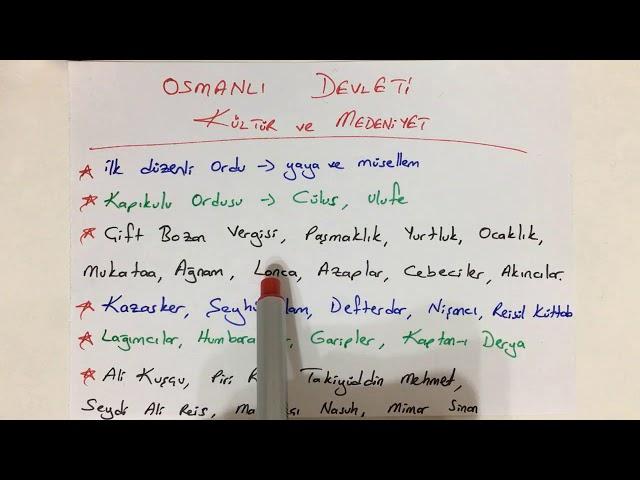 OSMANLI DEVLETİ
KÜLTÜR ve MEDENİYET
İlk düzenli Ordu → yaya ve müsellem
Kapıkulu Ordusu → Cülus, ulufe
Çift Bozan Vergisi, Paşmaklık, Yurtluk, Ocaklık,
Mukataa, Ağnam, Lonca, Azaplar, Cebeciler, Akıncılar.
Kazasker, Defterdar, Nişancı, Reisül Küttab
Lağımcılar, Garipler, Kaptan-ı Derya
Ali Kuşçu, Piri Takiyüddin Mehmet,
Seydi Ali Reis, Nasuh, Mimar Sinan